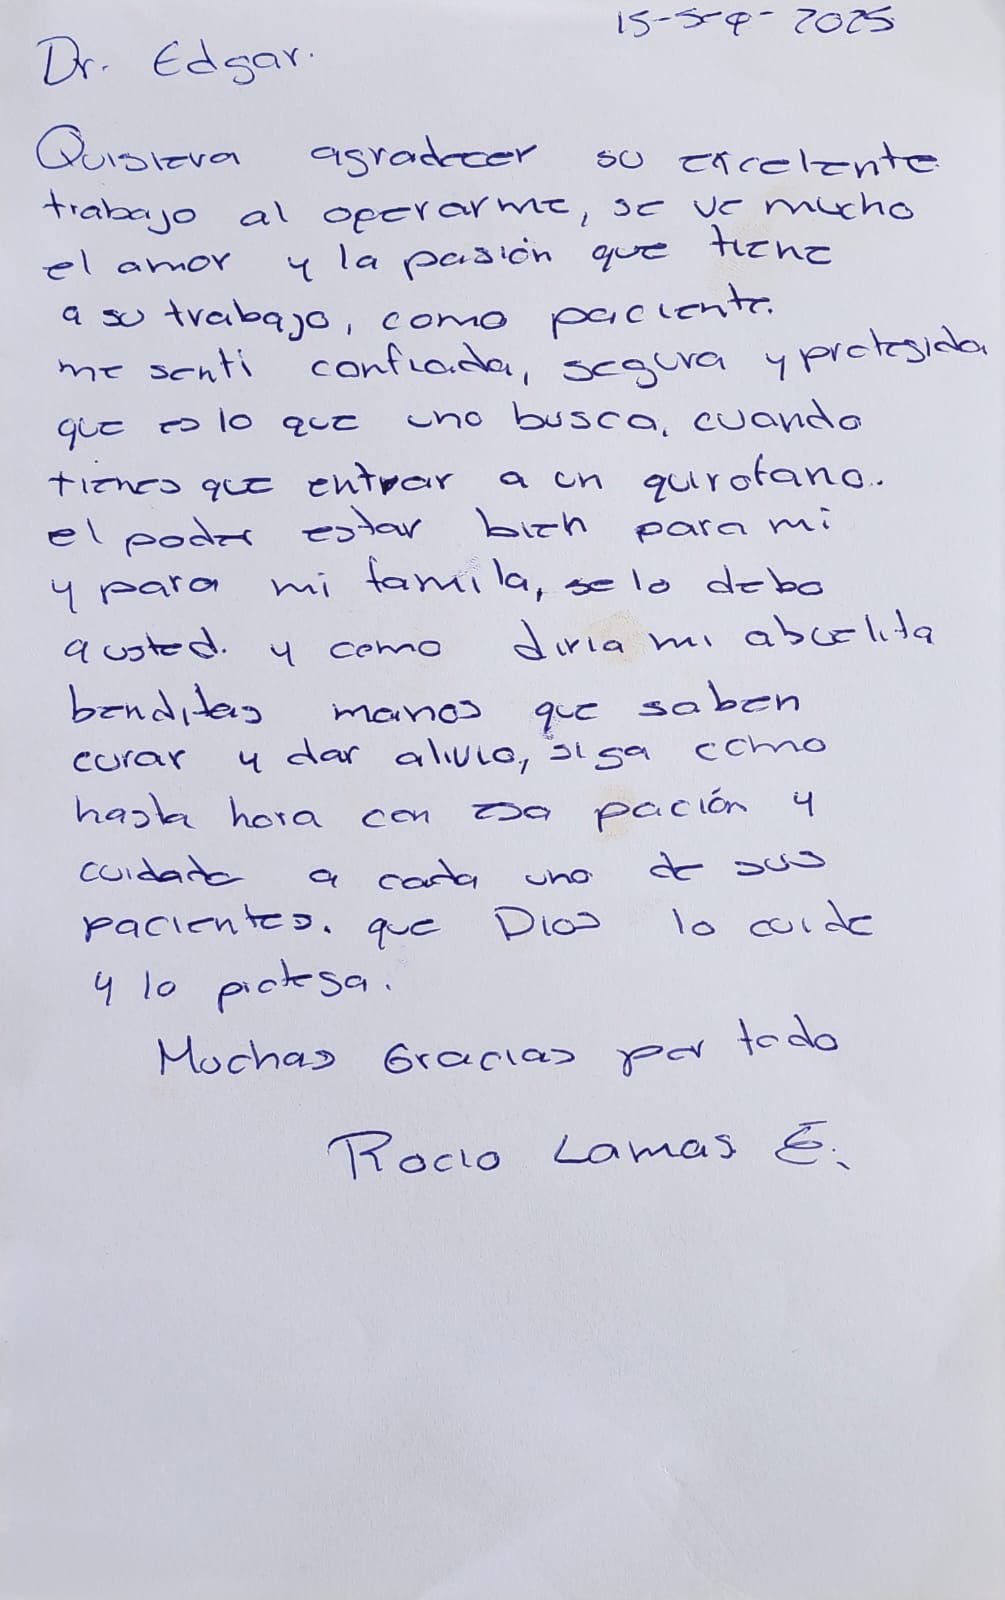 15-Sep-2025
Dr. Edgar.
Quisiera agradecer su excelente
trabajo al operarme, se ve mucho
el amor y la pasión que tiene
a su trabajo, como paciente.
me senti confiada, segura y protegida
que es lo que uno busca, cuando
tienes que entrar a un quirofano.
el poder estar bien para mi
y para mi famila, se lo debo
a usted. y como diria mi abuelita
benditas manos que saben
curar y dar alivio, siga como
hasta hora con esa pación y
cuidado a cada uno de sus
pacientes. que Dios lo cuide
y lo protega.
Muchas Gracias por todo
Rocio Lamas E.